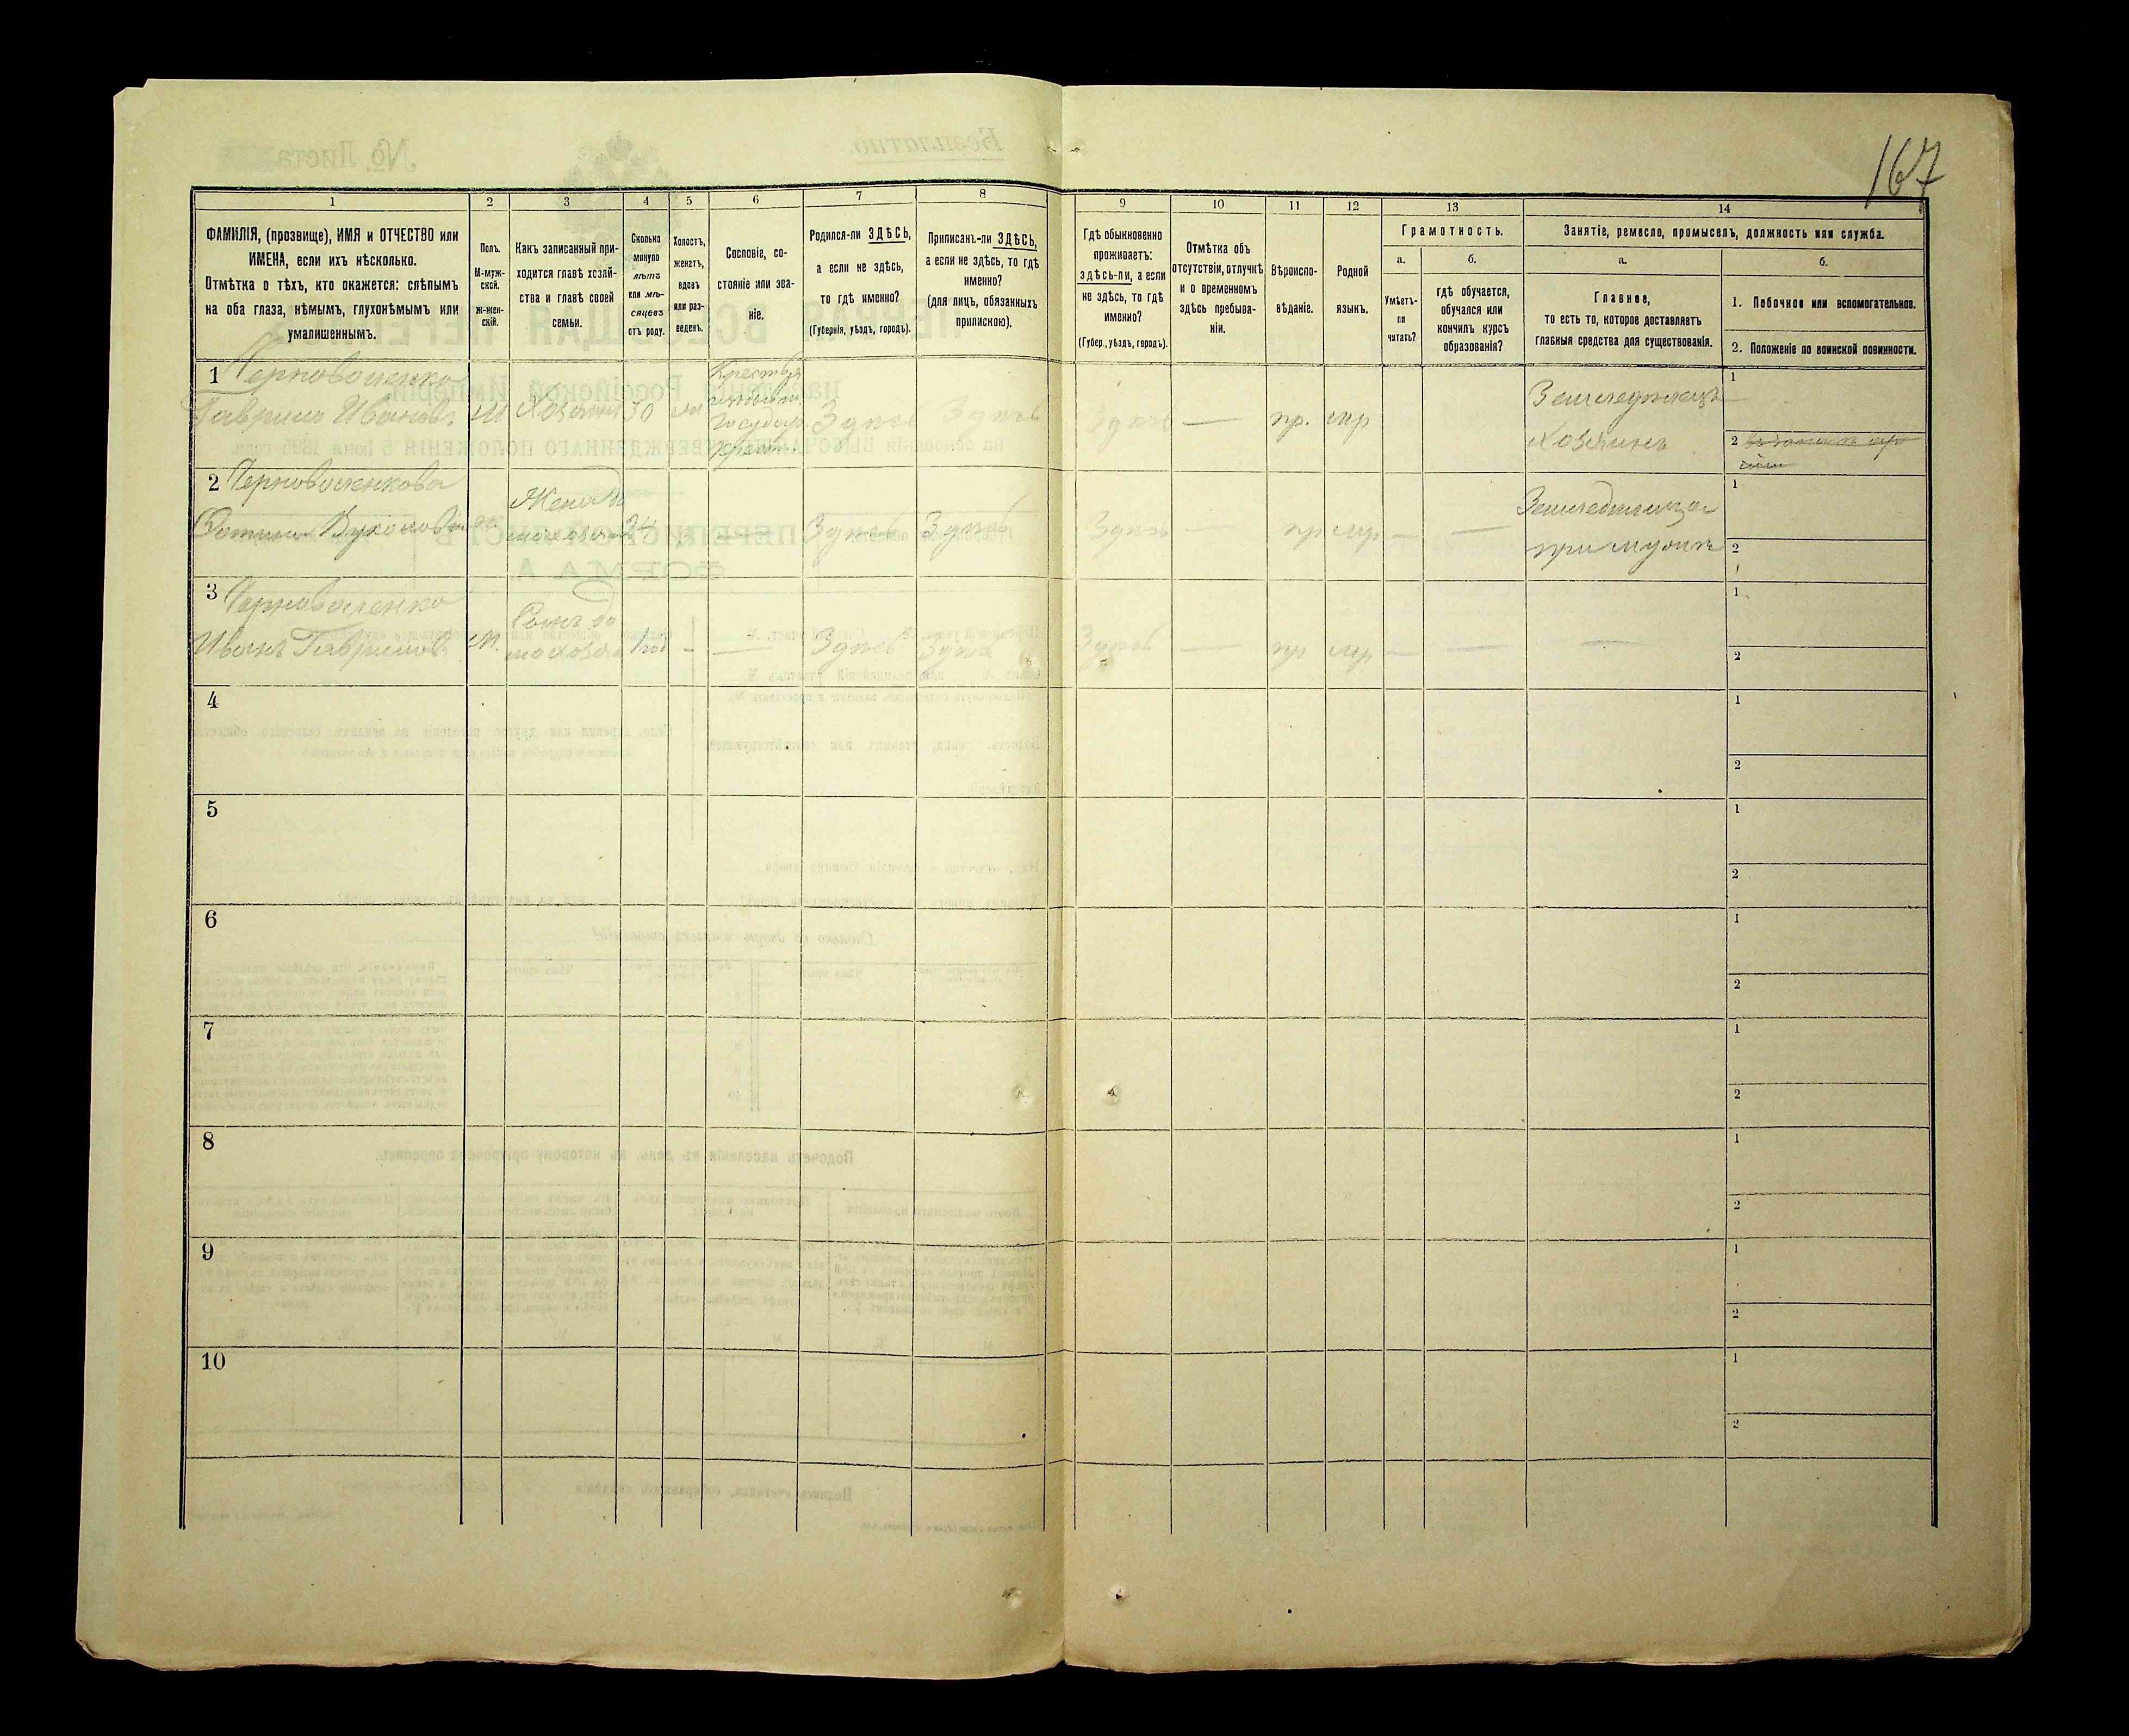 167
1
2
3
4
5
6
7
8
9
10
11
12
13
14
ФАМИЛІЯ, (прозвище), ИМЯ и ОТЧЕСТВО или
ИМЕНА, если ихъ нѣсколько.
Отмѣтка о тѣхъ, кто окажется: слѣпымъ
на оба глаза, нѣмымъ, глухонѣмымъ или
умалишеннымъ.
Полъ.
М-муж-
ской.
Ж-жен-
скій.
Какъ записанный при-
ходится главѣ хозяй-
ства и главѣ своей
семьи.
Сколько
минуло
лѣтъ
или мѣ-
сяцевъ
отъ роду.
Холостъ,
женатъ,
вдовъ
или раз-
веденъ.
Сословіе, со-
стояніе или зва-
ніе.
Родился-ли ЗДѢСЬ,
а если не здѣсь,
то гдѣ именно?
(Губернія, уѣздъ, городъ).
Приписанъ-ли ЗДѢСЬ,
а если не здѣсь, то гдѣ
именно?
(для лицъ, обязанныхъ
припискою).
Гдѣ обыкновенно
проживаетъ:
здѣсь-ли, а если
не здѣсь, то гдѣ
именно?
(Губер., уѣздъ, городъ).
Отмѣтка объ
отсутствіи, отлучкѣ
и о временномъ
здѣсь пребыва-
ніи.
Вѣроиспо-
вѣданіе.
Родной
языкъ.
Грамотность.
а.
Умѣетъ-
ли
читать?
б.
гдѣ обучается,
обучался или
кончилъ курсъ
образованія?
Занятіе, ремесло, промыселъ, должность или служба.
а.
Главное,
то есть то, которое доставляетъ
главныя средства для существованія.
б.
1. Побочное или вспомогательное.
2. Положеніе по воинской повинности.
1 Черноволенко
Гаврило Иванов. М Хозяинъ 30 Здѣсь Здѣсь Здѣсь — пр. мр
Государ.
Земледѣлецъ
Хозяинъ
1
2
2 Черноволенкова
Жена 24 Здѣсь Здѣсь Здѣсь — пр мр — —
Земледѣлица
при мужѣ
1
2
3 Черноволенко
Иванъ Гаврилов М. Сынъ 1 год — — Здѣсь Здѣсь Здѣсь — пр мр — — —
1
2
4
1
2
5
1
2
6
1
2
7
1
2
8
1
2
9
1
2
10
1
2